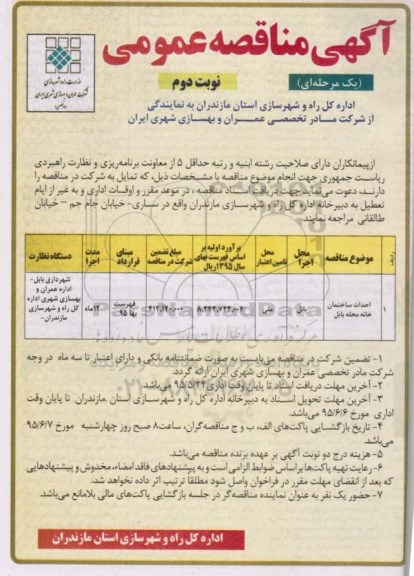 آگهی مناقصه عمومی
(یک مرحله‌ای)
نوبت دوم
وزارت راه و شهرسازی
اداره کل راه و شهرسازی استان مازندران به نمایندگی
از شرکت مادر تخصصی عمران و بهسازی شهری ایران
ازپیمانکاران دارای صلاحیت رشته ابنیه و رتبه حداقل ۵ از معاونت برنامه‌ریزی و نظارت راهبردی
ریاست جمهوری جهت انجام موضوع مناقصه با مشخصات ذیل، که تمایل به شرکت در مناقصه را
دارند، دعوت می‌نماید جهت دریافت اسناد مناقصه، در موعد مقرر و اوقات اداری و به غیر از ایام
تعطیل به دبیرخانه اداره کل راه و شهرسازی مازندران واقع در ساری- خیابان جام جم – خیابان
طالقانی مراجعه نمایند.
ردیف
موضوع مناقصه
محل اجرا
محل تامین اعتبار
برآورد اولیه بر اساس فهرست بهای سال ۱۳۹۵ ریال
مبلغ تضمین شرکت در مناقصه
مبنای قرارداد
مدت اجرا
دستگاه نظارت
۱
احداث ساختمان خانه محله بابل
بابل
ملی
فهرست بها ۹۵
۱۲ماه
شهرداری بابل- اداره عمران و بهسازی شهری اداره کل راه و شهرسازی مازندران-
۱- تضمین شرکت در مناقصه می‌بایست به صورت ضمانتنامه بانکی و دارای اعتبار تا سه ماه در وجه
شرکت مادر تخصصی عمران و بهسازی شهری ایران ارائه گردد.
۲- آخرین مهلت دریافت اسناد تا پایان وقت اداری ۹۵/۵/۲۴ می‌باشد.
۳- آخرین مهلت تحویل اسناد به دبیرخانه اداره کل راه و شهرسازی استان مازندران تا پایان وقت
اداری مورخ ۹۵/۶/۶ می‌باشد.
۴- تاریخ بازگشایی پاکت‌های الف، ب و ج مناقصه‌گران، ساعت ۸ صبح روز چهارشنبه مورخ ۹۵/۶/۷
می‌باشد.
۵- هزینه درج دو نوبت آگهی بر عهده برنده مناقصه می‌باشد.
۶- رعایت تهیه پاکت‌ها براساس ضوابط الزامی است و به پیشنهادهای فاقد امضاء، مخدوش و پیشنهادهایی
که بعد از انقضای مهلت مقرر در فراخوان واصل شود مطلقا ترتیب اثر داده نخواهد شد.
۷- حضور یک نفر به عنوان نماینده مناقصه‌گر در جلسه بازگشایی پاکت‌های مالی بلامانع می‌باشد.
اداره کل راه و شهرسازی استان مازندران